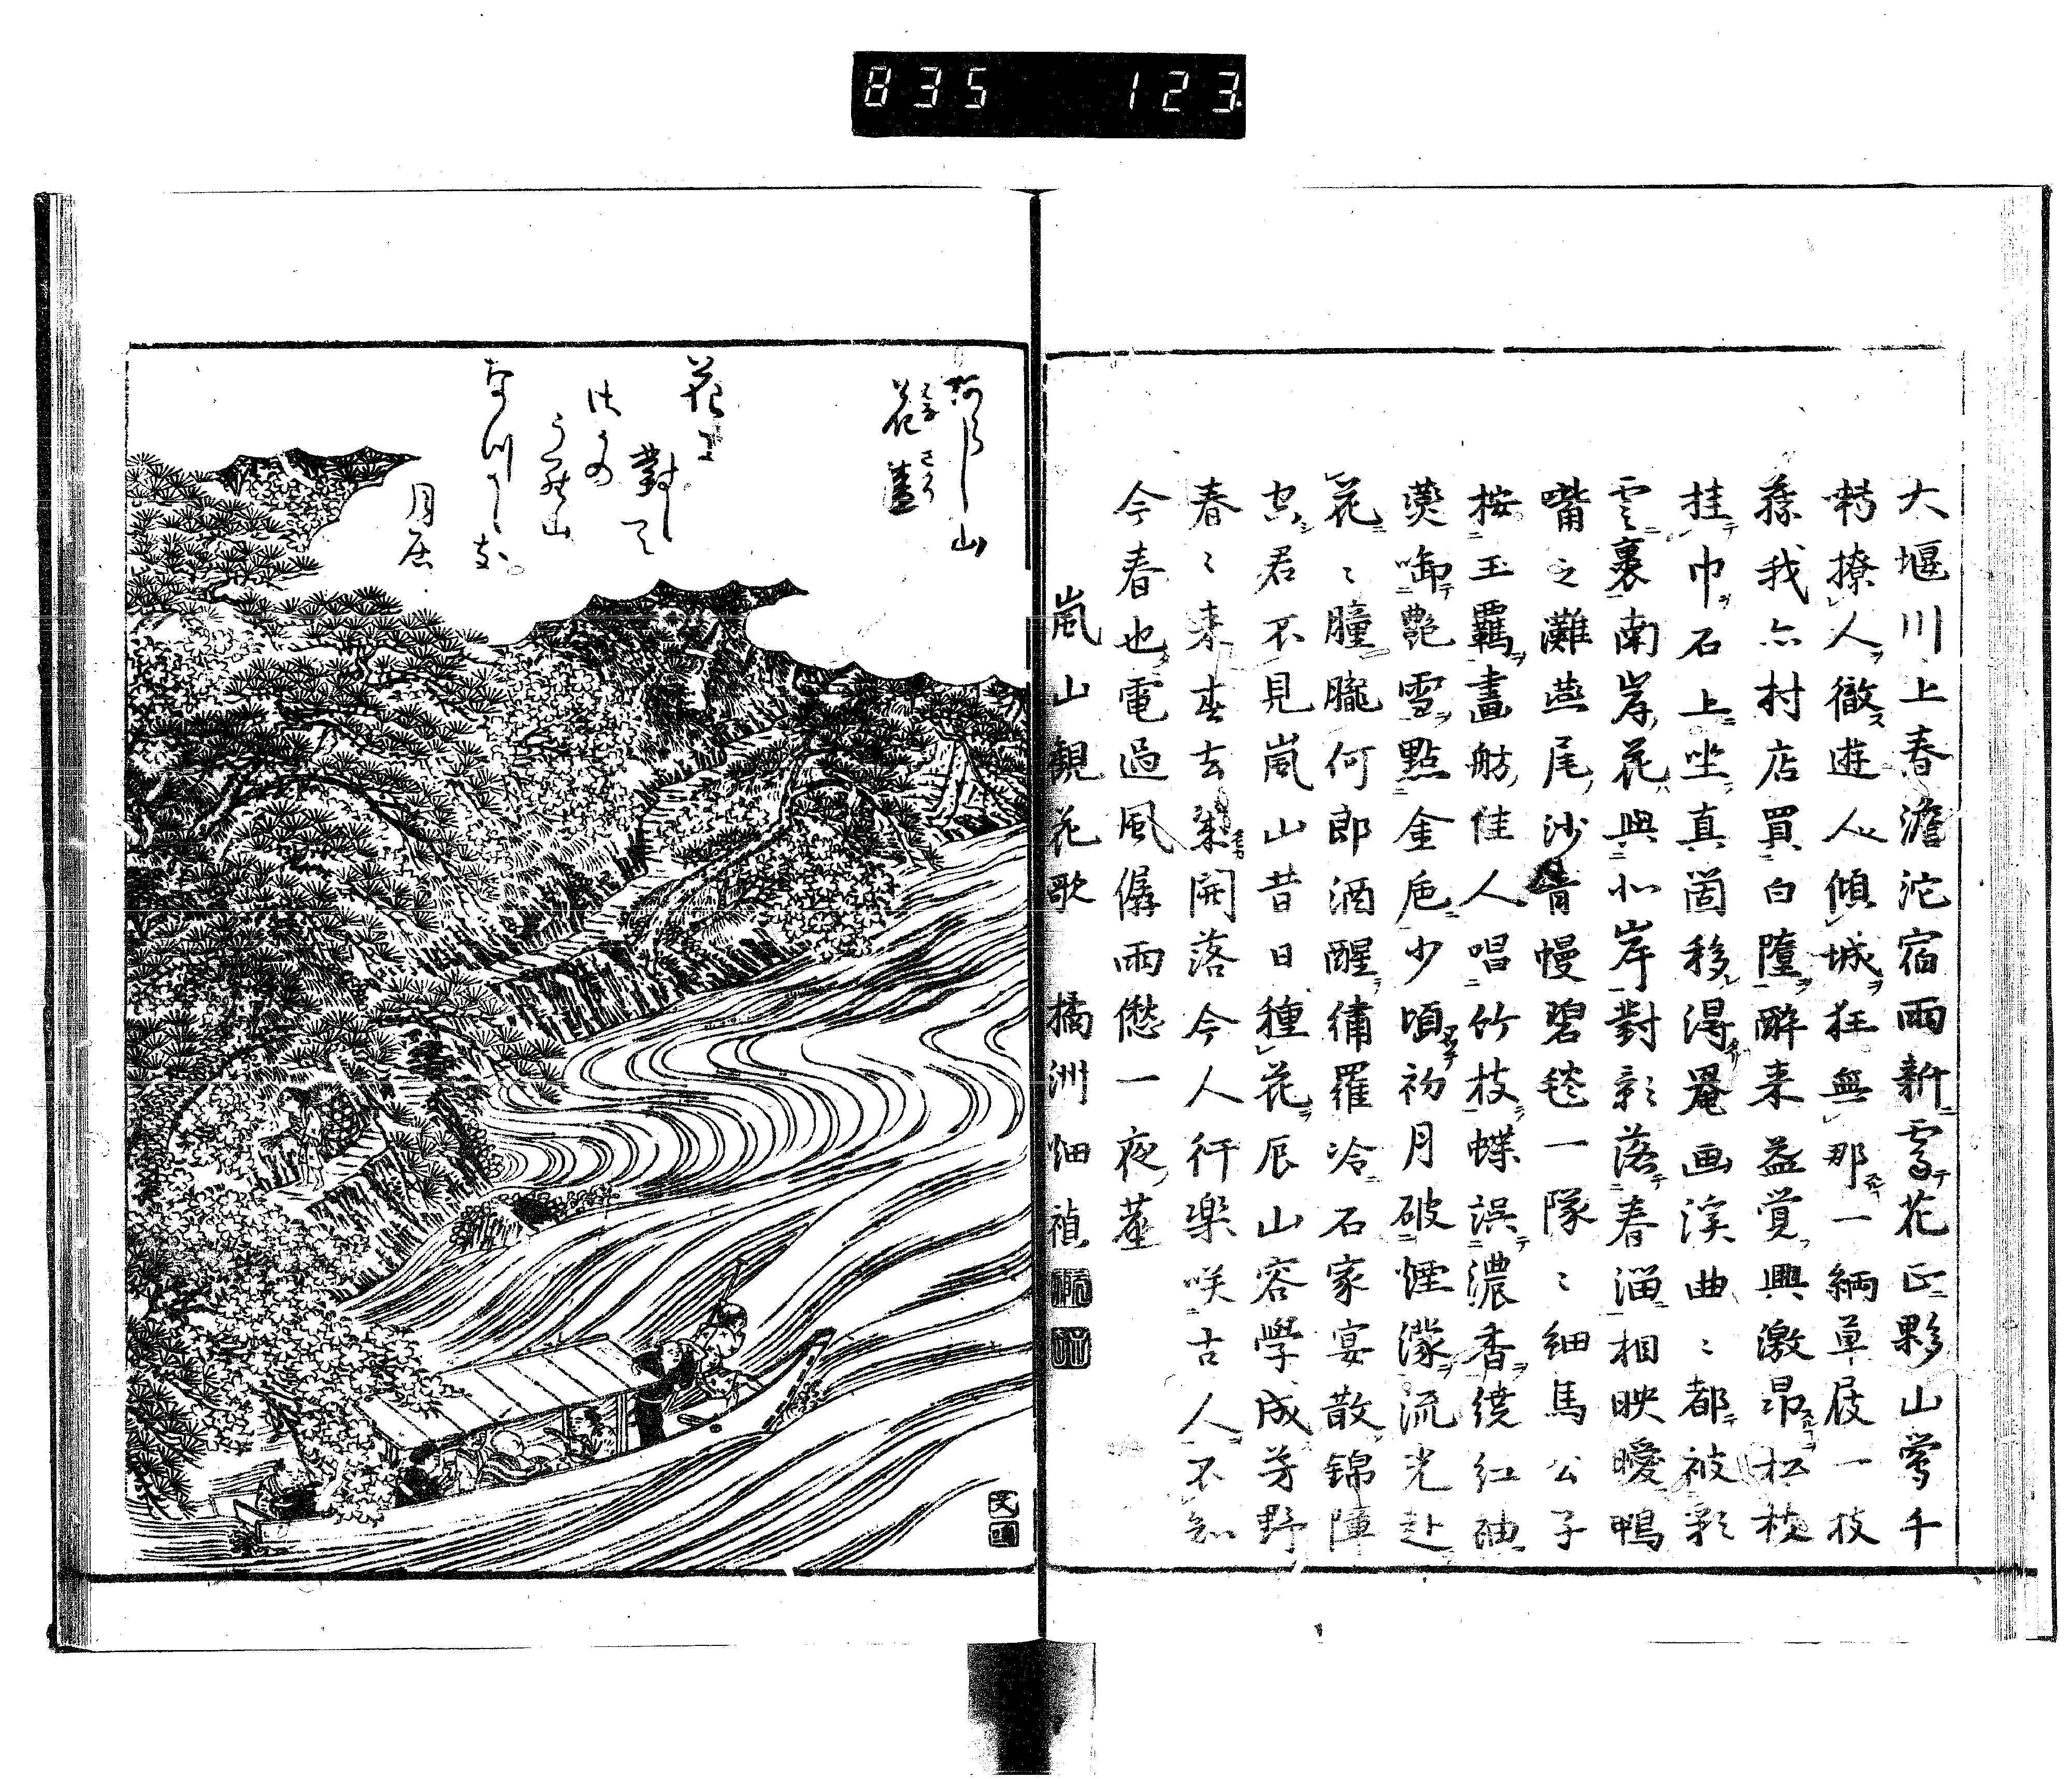 835 123
大堰川上春澹沱宿雨新霽花正夥山鶯千
囀撩人徹遊人傾城狂無那一緉草屐一枝
藜我亦村店買白墮醉来益覚興激昂松枝
挂巾石上坐真箇移得罨画渓曲〻都被彩
雲裹南岸花與北岸對影落春淄相映曖鴨
嘴之灘燕尾沙青幔碧毯一隊〻細馬公子
按玉羈畫舫佳人唱竹枝蝶誤濃香繞紅袖
鶯啣艶雪點金巵少頃初月破煙濛流光赴
花〻朣朧何郎酒醒繍羅冷石家宴散錦陣
空君不見嵐山昔日種花辰山容學成芳野
春〻来春去幾開落今人行楽咲古人不知
今春也電過風僝雨僽一夜
嵐山観花歌　橘洲畑禎
あらし山
花盛
花に
對して
山
月居
文鳴